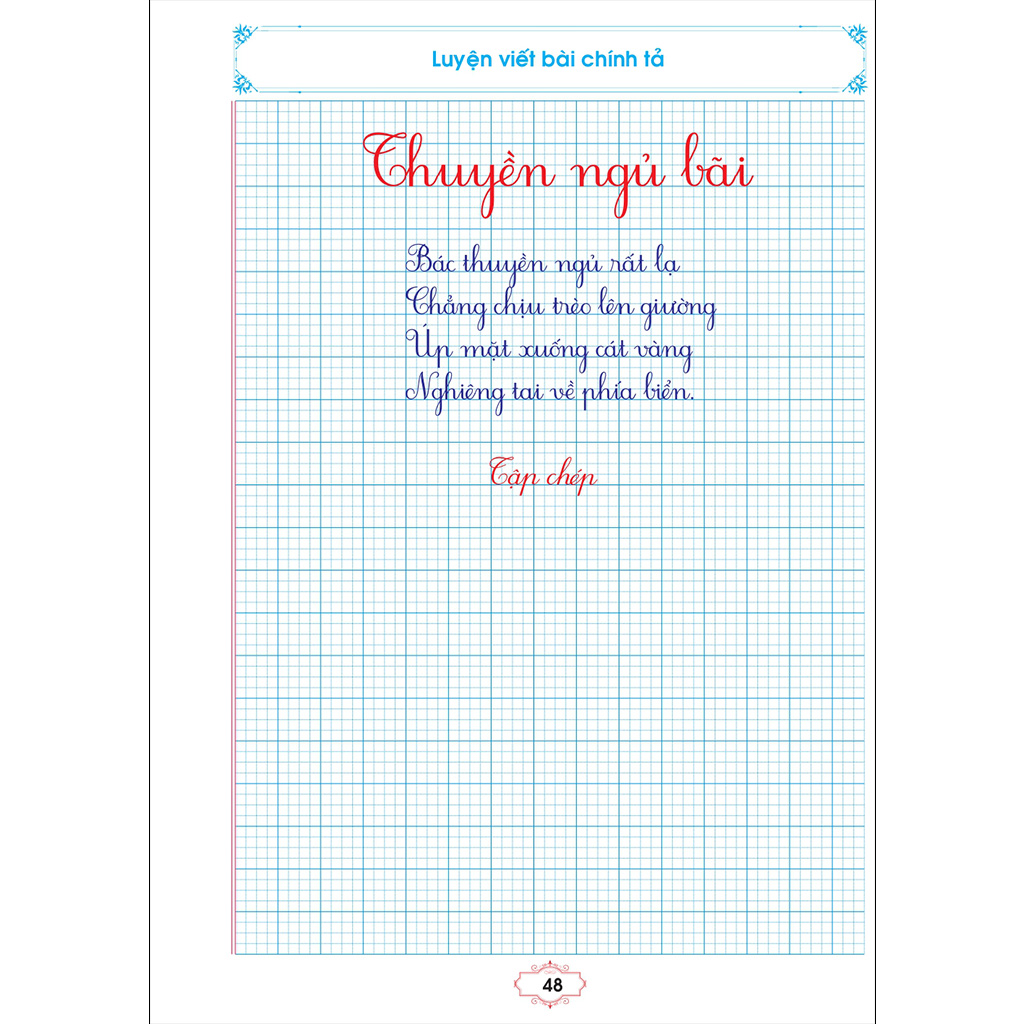 Luyện viết bài chính tả
Thuyền ngủ bãi
Bác thuyền ngủ rất lạ
Chẳng chịu trèo lên giường
Úp mặt xuống cát vàng
Nghiêng tai về phía biển.
Tập chép
48